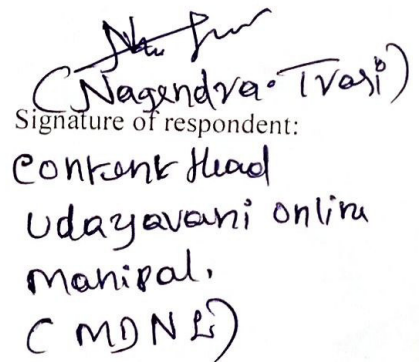 (Nagendra. Trasi)
Signature of respondent:
Content Head
Udayavani Online
Manipal.
(MDNL)